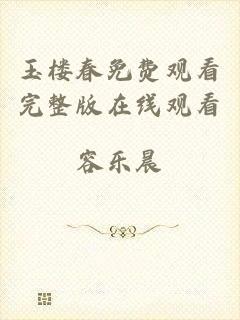 玉楼春免费观看
完整版在线观看
容乐晨